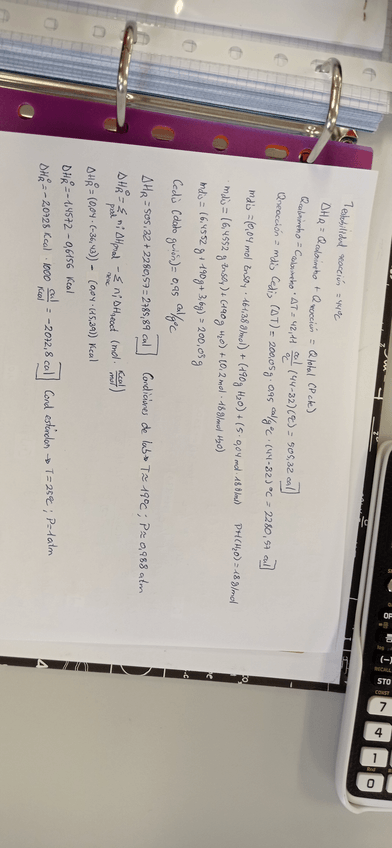 Testabilidad reacción = 44°C
ΔHR = Qcalorímetro + Qreacción = Qtotal (P cte)
Qcalorímetro = Ccalorímetro · ΔT = 42,11 cal/°C (44-32)(°C) = 505,32 cal
Qreacción = mdis Cedis (ΔT) = 200,05g · 0,95 cal/g°C · (44-32)°C = 2280,57 cal
mdis = (0,04 mol ZnSO4 · 161,38 g/mol) + (190g H2O) + (5 · 0,04 mol · 18 g/mol) PM(H2O) = 18 g/mol
mdis = (6,4552 g ZnSO4) + (190g H2O) + (0,2 mol · 18 g/mol H2O)
mdis = (6,4552 g + 190g + 3,6g) = 200,05g
Cedis (dato guión) = 0,95 cal/g°C
ΔHR = 505,32 + 2280,57 = 2785,89 cal Condiciones de lab → T ≈ 19°C ; P ≈ 0,988 atm
ΔH°R = Σ prod ni ΔH°prod - Σ reac ni ΔH°reac (mol Kcal/mol)
ΔH°R = (0,04 · (-36,43)) - (0,04 · (15,39)) Kcal
ΔH°R = -1,4572 - 0,6156 Kcal
ΔH°R = -2,0728 Kcal · 1000 cal/Kcal = -2072,8 cal Cond estándar → T = 25°C ; P = 1 atm
STO
7
4
1
0
(-)